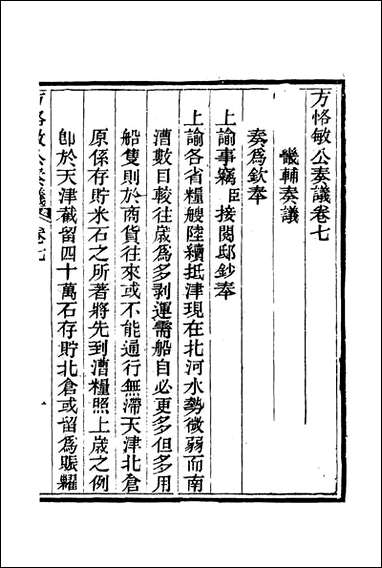 方恪敏公奏議卷七
畿輔奏議
奏爲欽奉
上諭事竊臣接閱邸鈔奉
上諭各省糧艘陸續抵津現在北河水勢微弱而南
漕數目較往歲爲多剥運需船自必更多但多用
船隻則於商貨往來或不能通行無滯天津北倉
原係存貯水石之所著將先到漕糧照上歲之例
卽於天津截留四十萬石存貯北倉或留爲賑糶
方恪敏公奏議 卷七 一